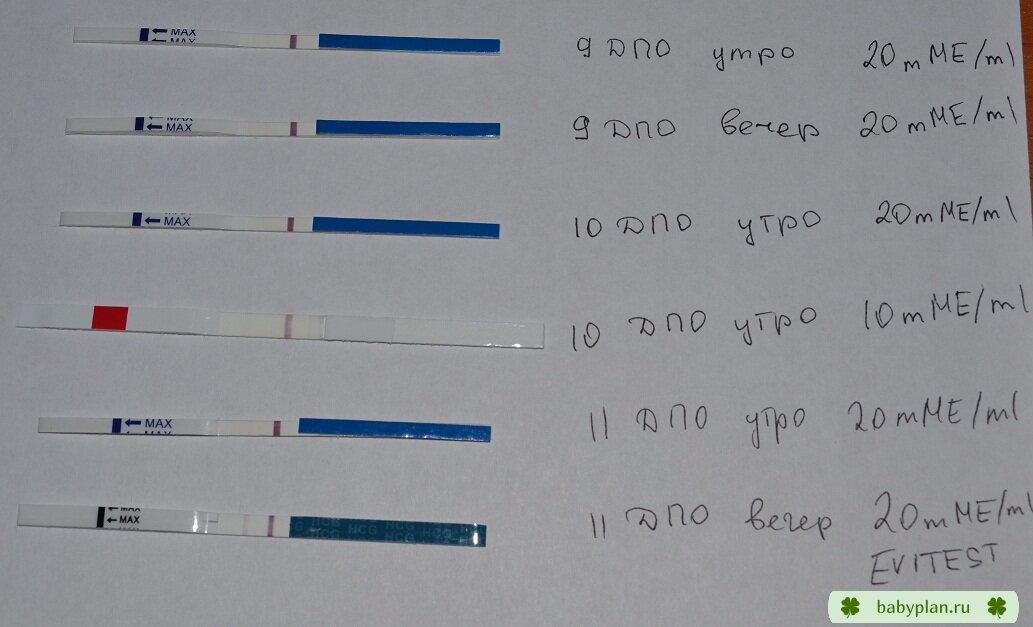 MAX
MAX
9 ДПО утро 20 mME/ml
MAX
MAX
9 ДПО вечер 20 mME/ml
MAX
10 ДПО утро 20 mME/ml
10 ДПО утро 10 mME/ml
MAX
11 ДПО утро 20 mME/ml
MAX
MAX
HCG HCG HCG
HCG HCG HCG
11 ДПО вечер 20 mME/ml
EVITEST
babyplan.ru